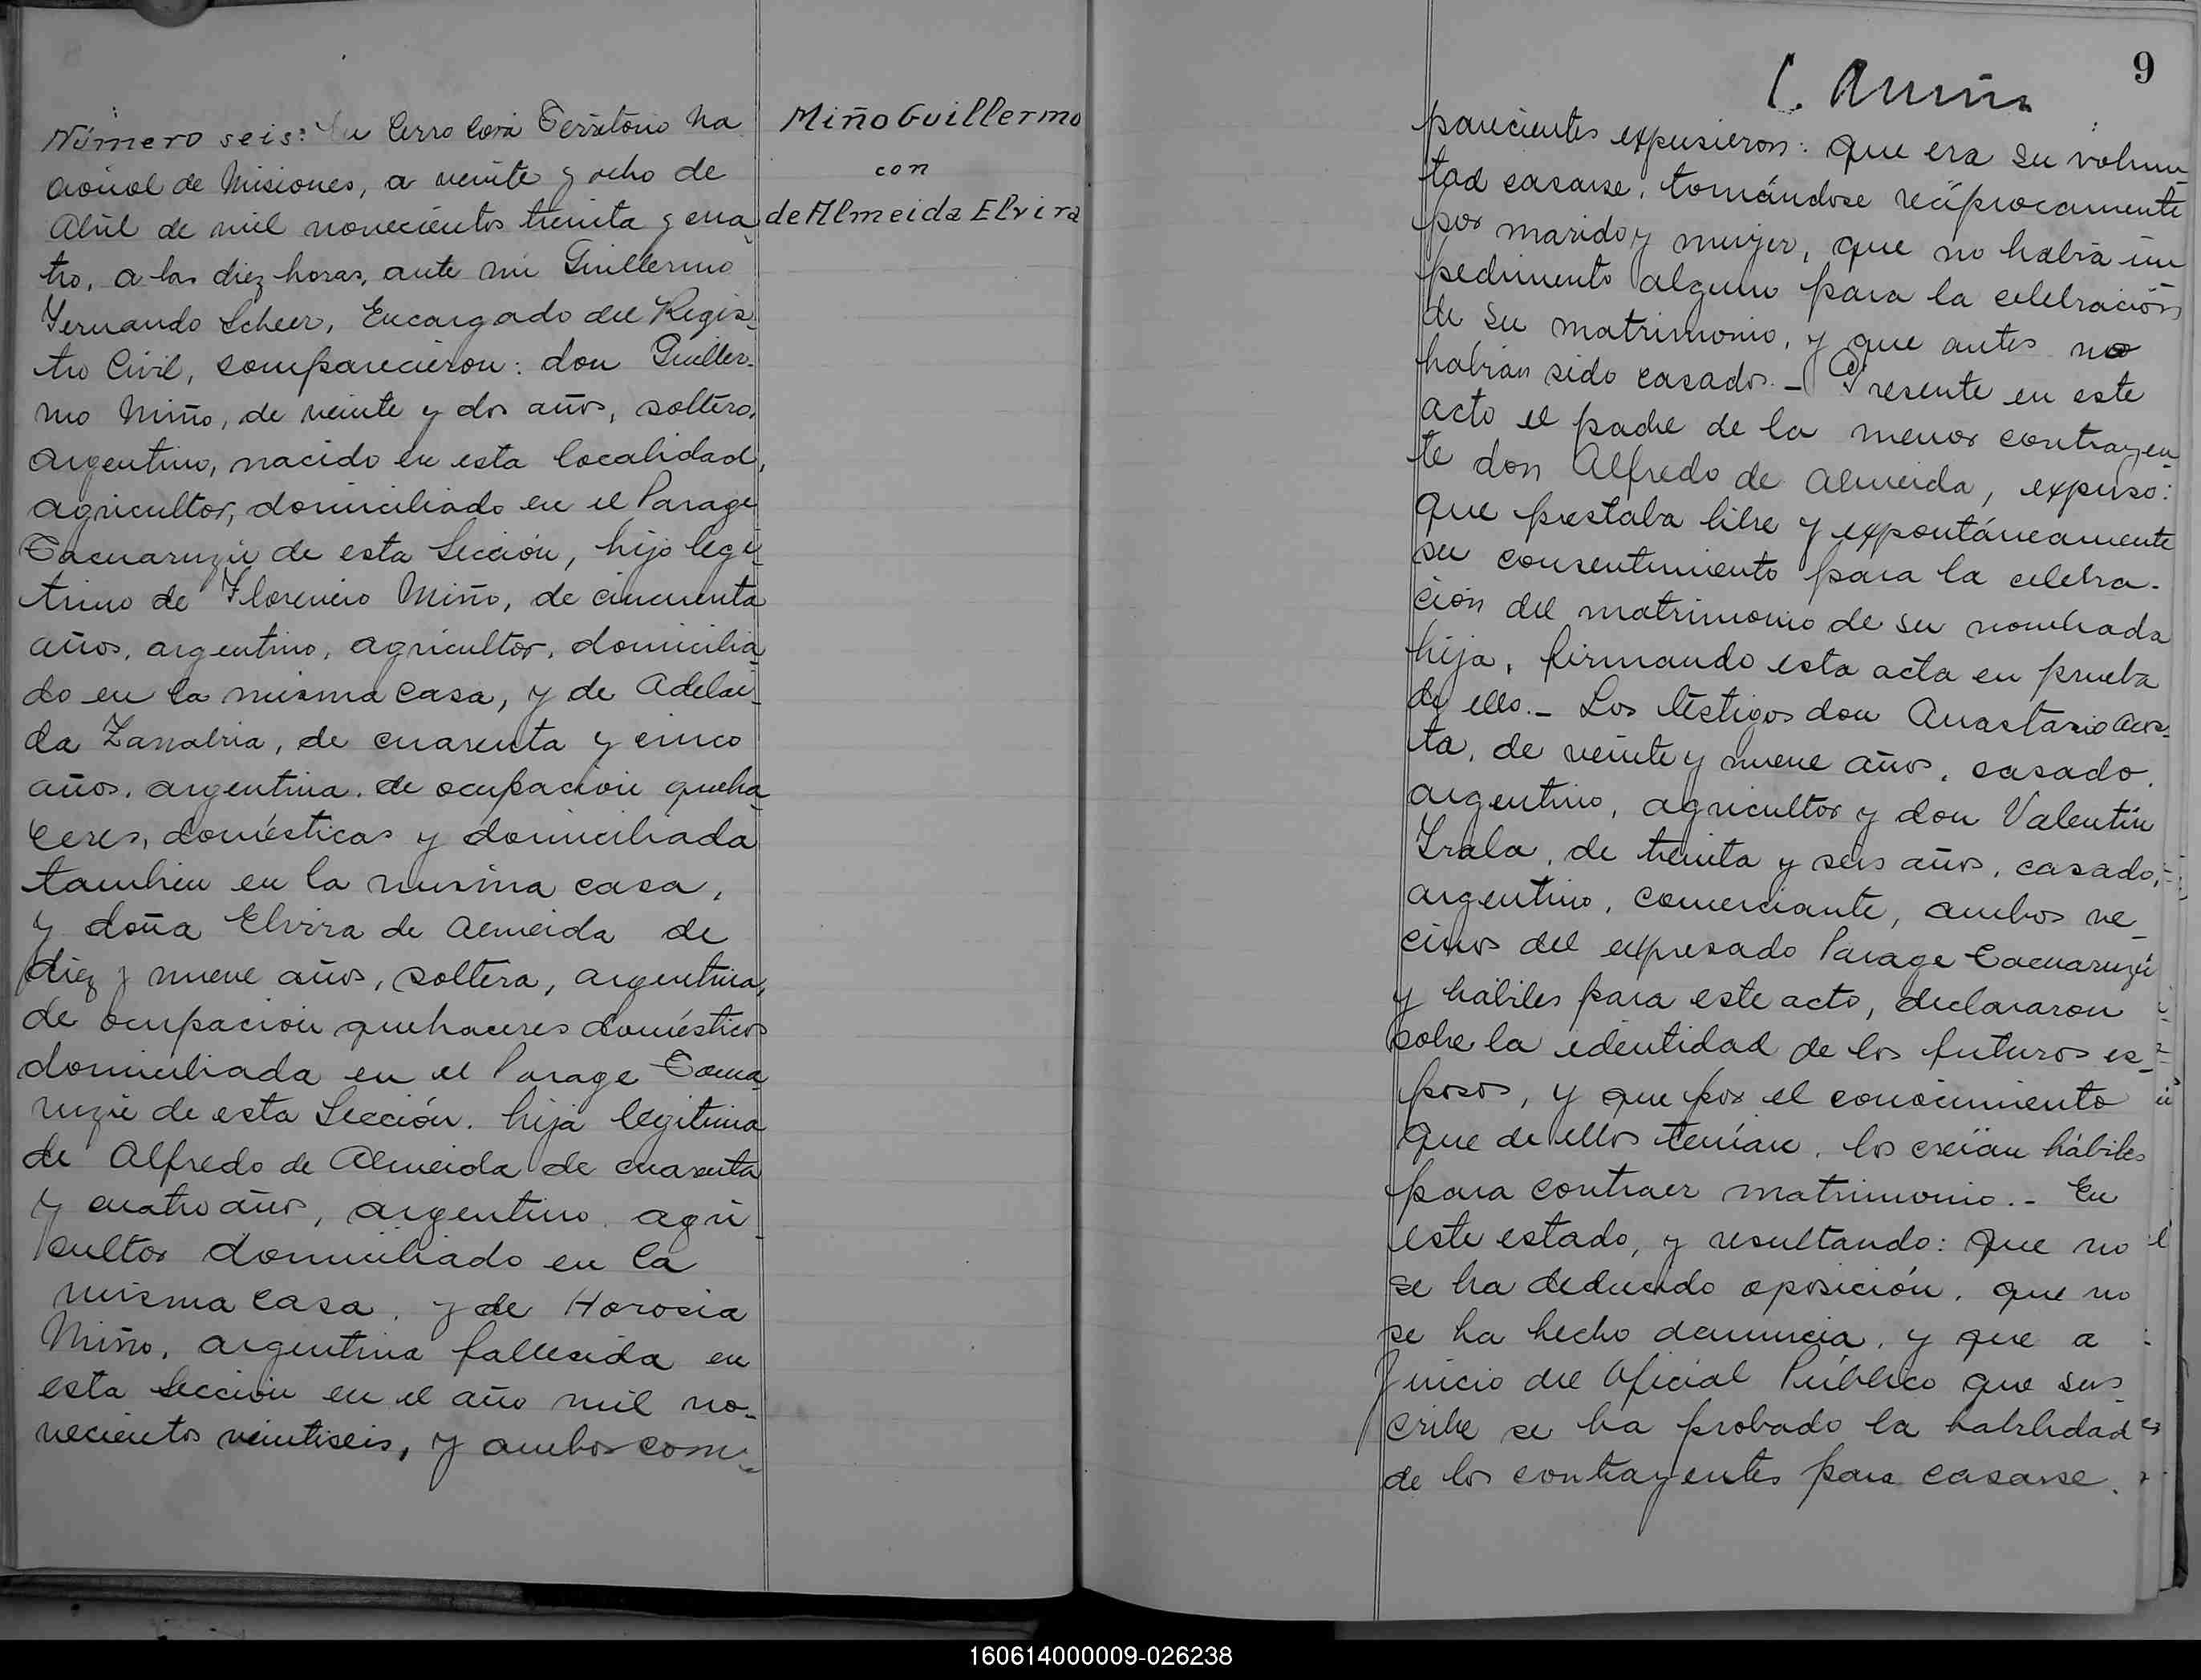 Número seis: En Cerro Corá Territorio Na
cional de Misiones, a veinte y ocho de
Abril de mil novecientos treinta y cua
tro, a las diez horas, ante mi Guillermo
Fernando Scheer, Encargado del Regis-
tro Civil, comparecieron: don Guiller-
mo Miño, de veinte y dos años, soltero,
argentino, nacido en esta localidad,
agricultor, domiciliado en el Parage
Tacuaruzú de esta Sección, hijo legí
timo de Florencio Miño, de cincuenta
años, argentino, agricultor, domicilia
do en la misma casa, y de Adelai-
da Zanabria, de cuarenta y cinco
años, argentina, de ocupación queha
ceres, domésticas y domiciliada
tambien en la misma casa,
y doña Elvira de Almeida de
diez y nueve años, soltera, argentina,
de ocupación quehaceres domésticos
domiciliada en el Parage Tacua
ruzú de esta Sección. hija legitima
de Alfredo de Almeida de cuarenta
y cuatro años, argentino, agri-
cultor domiciliado en la
misma casa, y de Horosia
Miño, argentina fallecida en
esta Sección en el año mil no-
vecientos veintiseis, y ambos com-
Miño Guillermo
con
de Almeida Elvira
9
parecientes expusieron: que era su volun-
tad casarse, tomándose recíprocamente
por marido y mujer, que no había im
pedimento alguno para la celebración
de su matrimonio, y que antes no
habían sido casados.- Presente en este
acto el padre de la menor contrayen-
te don Alfredo de Almeida, expuso:
que prestaba libre y expontáneamente
su consentimiento para la celebra-
ción del matrimonio de su nombrada
hija, firmando esta acta en prueba
de ello.- Los testigos don Anastasio Acos-
ta, de veinte y nueve años, casado,
argentino, agricultor y don Valentín
Irala, de treinta y seis años, casado,
argentino, comerciante, ambos ve-
cinos del expresado Parage Tacuaruzú
y hábiles para este acto, declararon
sobre la identidad de los futuros es-
posos, y que por el conocimiento
que de ellos tenían, los creían hábiles
para contraer matrimonio.- En
este estado, y resultando: que no
se ha deducido oposición, que no
se ha hecho denuncia, y que a
juicio del Oficial Público que sus
cribe se ha probado la habilidad
de los contrayentes para casarse.
160614000009-026238